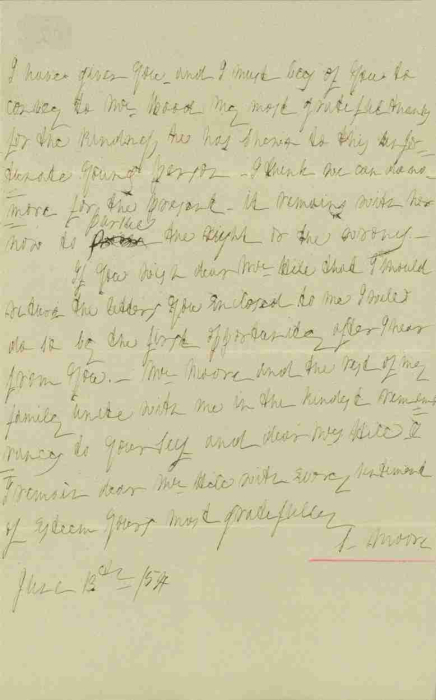 I have given you and I must beg of you to
convey to Mr Wood my most grateful thanks
for the kindness he has shewn to this unfor-
tunate young person - I think we can do no
more for the present - it remains with her
now to pursue the right or the wrong. -
If you wish dear Mr Hill that I should
return the letters you enclosed to me I will
do so by the first opportunity after I hear
from you. - Mr Moore and the rest of my
family unite with me in the kindest remem
rances to yourself and dear Mrs Hill &
I remain dear Mr Hill with every sentiment
of esteem yours most gratefully
Moore
June 13th - /54